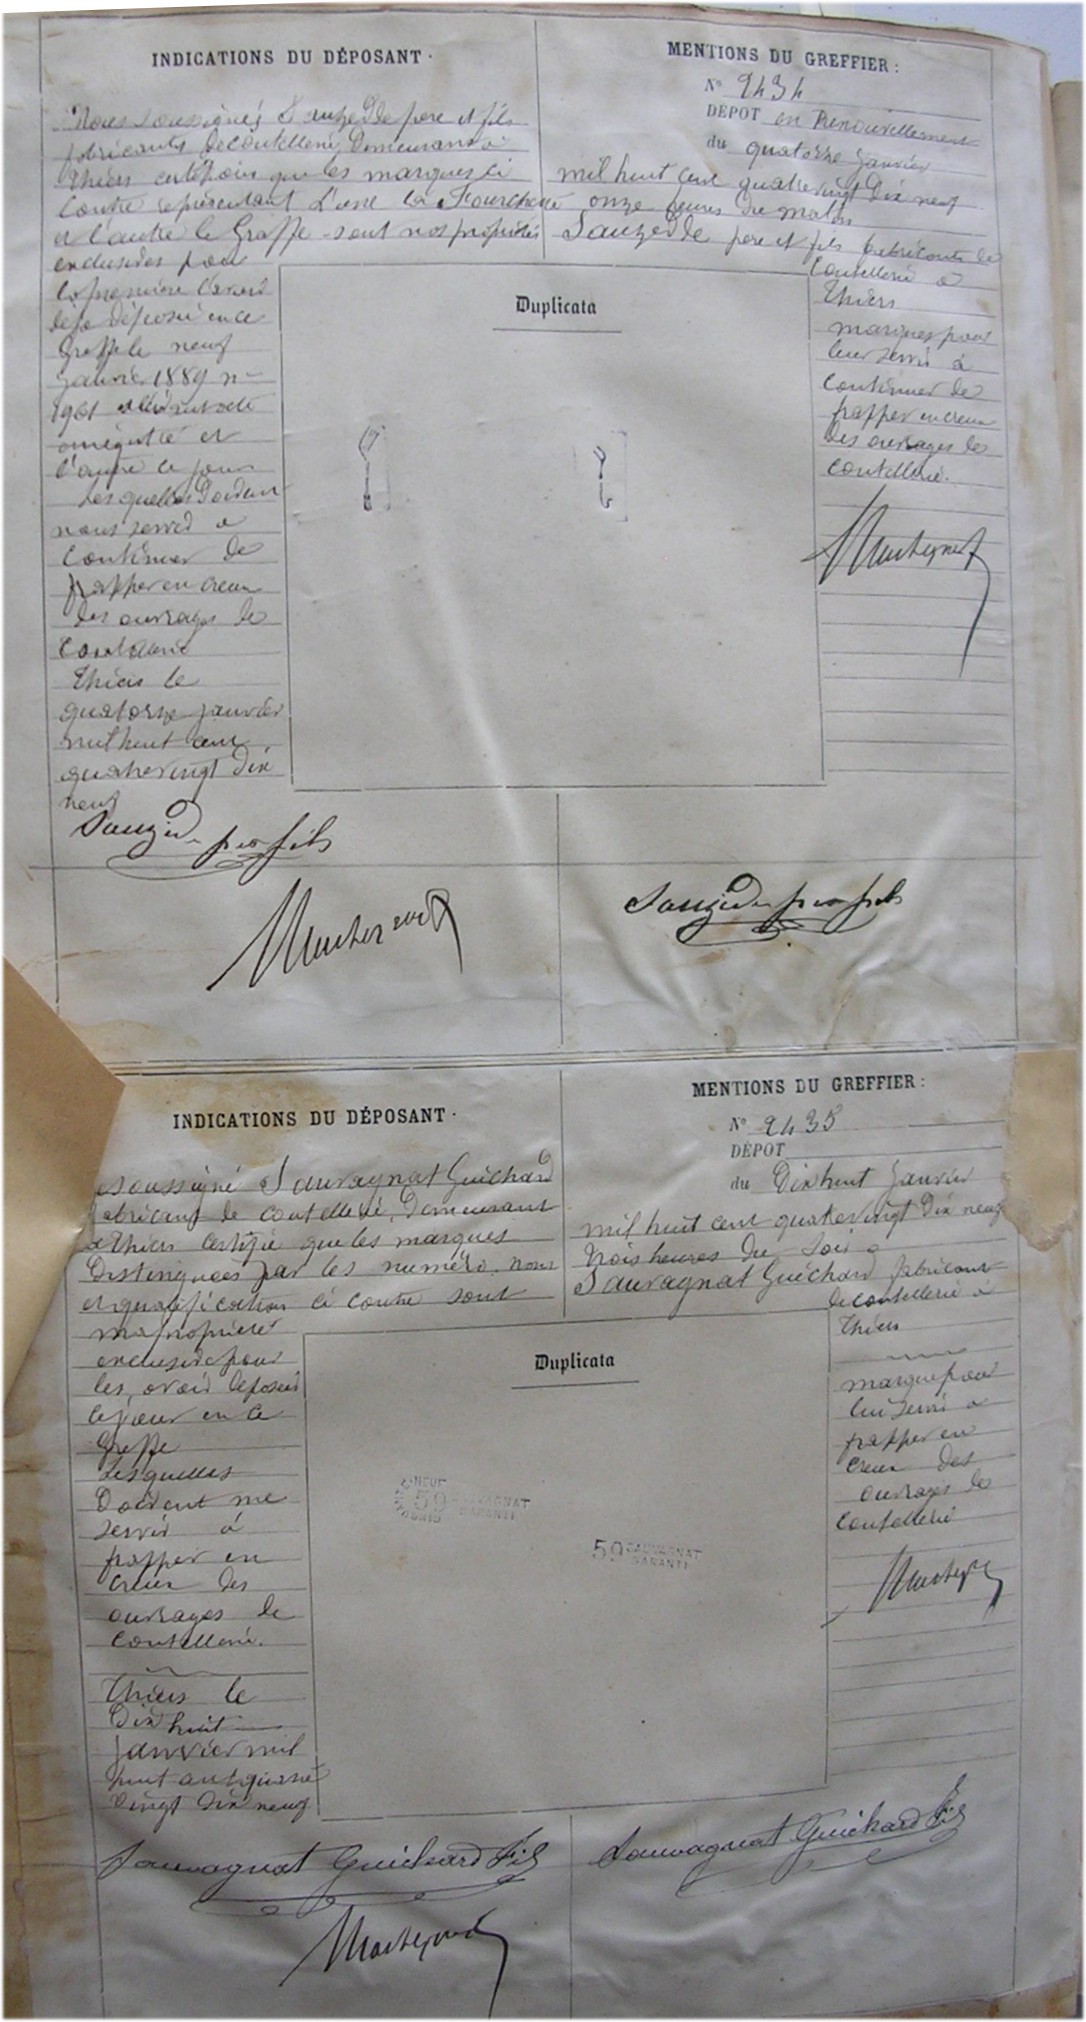 INDICATIONS DU DÉPOSANT.
Nous soussignés Sauzedde pere et fils
fabricants de coutellerie Demeurant à
Thiers certifions que les marques ci
contre représentant l'une la Fourchette
et l'autre le Greffe sont nos propriétés
exclusives pour
la premiere l'avoir
déjà déposée en ce
Greffe le neuf
Janvier 1889 n°
1961
et
l'autre ce jour
Lesquelles Doivent
nous servir a
continuer de
frapper en creux
des ouvrages de
Coutellerie
Thiers le
quatorze janvier
mil huit cent
quatrevingt Dix
neuf
Sauzedde pere fils
MENTIONS DU GREFFIER :
N° 2434
DÉPOT en Renouvellement
du quatorze Janvier
mil huit cent quatrevingt Dix neuf
onze heures du matin
Sauzedde pere et fils fabricants de
Coutellerie a
Thiers
marques pour
leur servir à
continuer de
frapper en creux
des ouvrages de
coutellerie.
Duplicata
Sauzedde pere fils
INDICATIONS DU DÉPOSANT.
soussigné Sauvagnat Guichard
fabricant de coutellerie, Demeurant
a Thiers certifie que les marques
Distinguées par les numéro, nom
et qualification ci contre sont
ma propriété
exclusive pour
les avoir déposées
ce jour en ce
Greffe
Lesquelles
Doivent me
servir à
frapper en
creux des
ouvrages de
coutellerie.
Thiers le
Dix huit
janvier mil
huit cent quatre
vingt dix neuf
Sauvagnat Guichard Fils
MENTIONS DU GREFFIER :
N° 2435
DÉPOT
du Dix huit Janvier
mil huit cent quatrevingt Dix neuf
trois heures du soir
Sauvagnat Guichard fabricant
de coutellerie à
Thiers
marque pour
lui servir a
frapper en
creux des
ouvrages de
Coutellerie
Duplicata
NEUF
59 SAUVAGNAT
GARANTI
59 SAUVAGNAT
GARANTI
Sauvagnat Guichard Fils